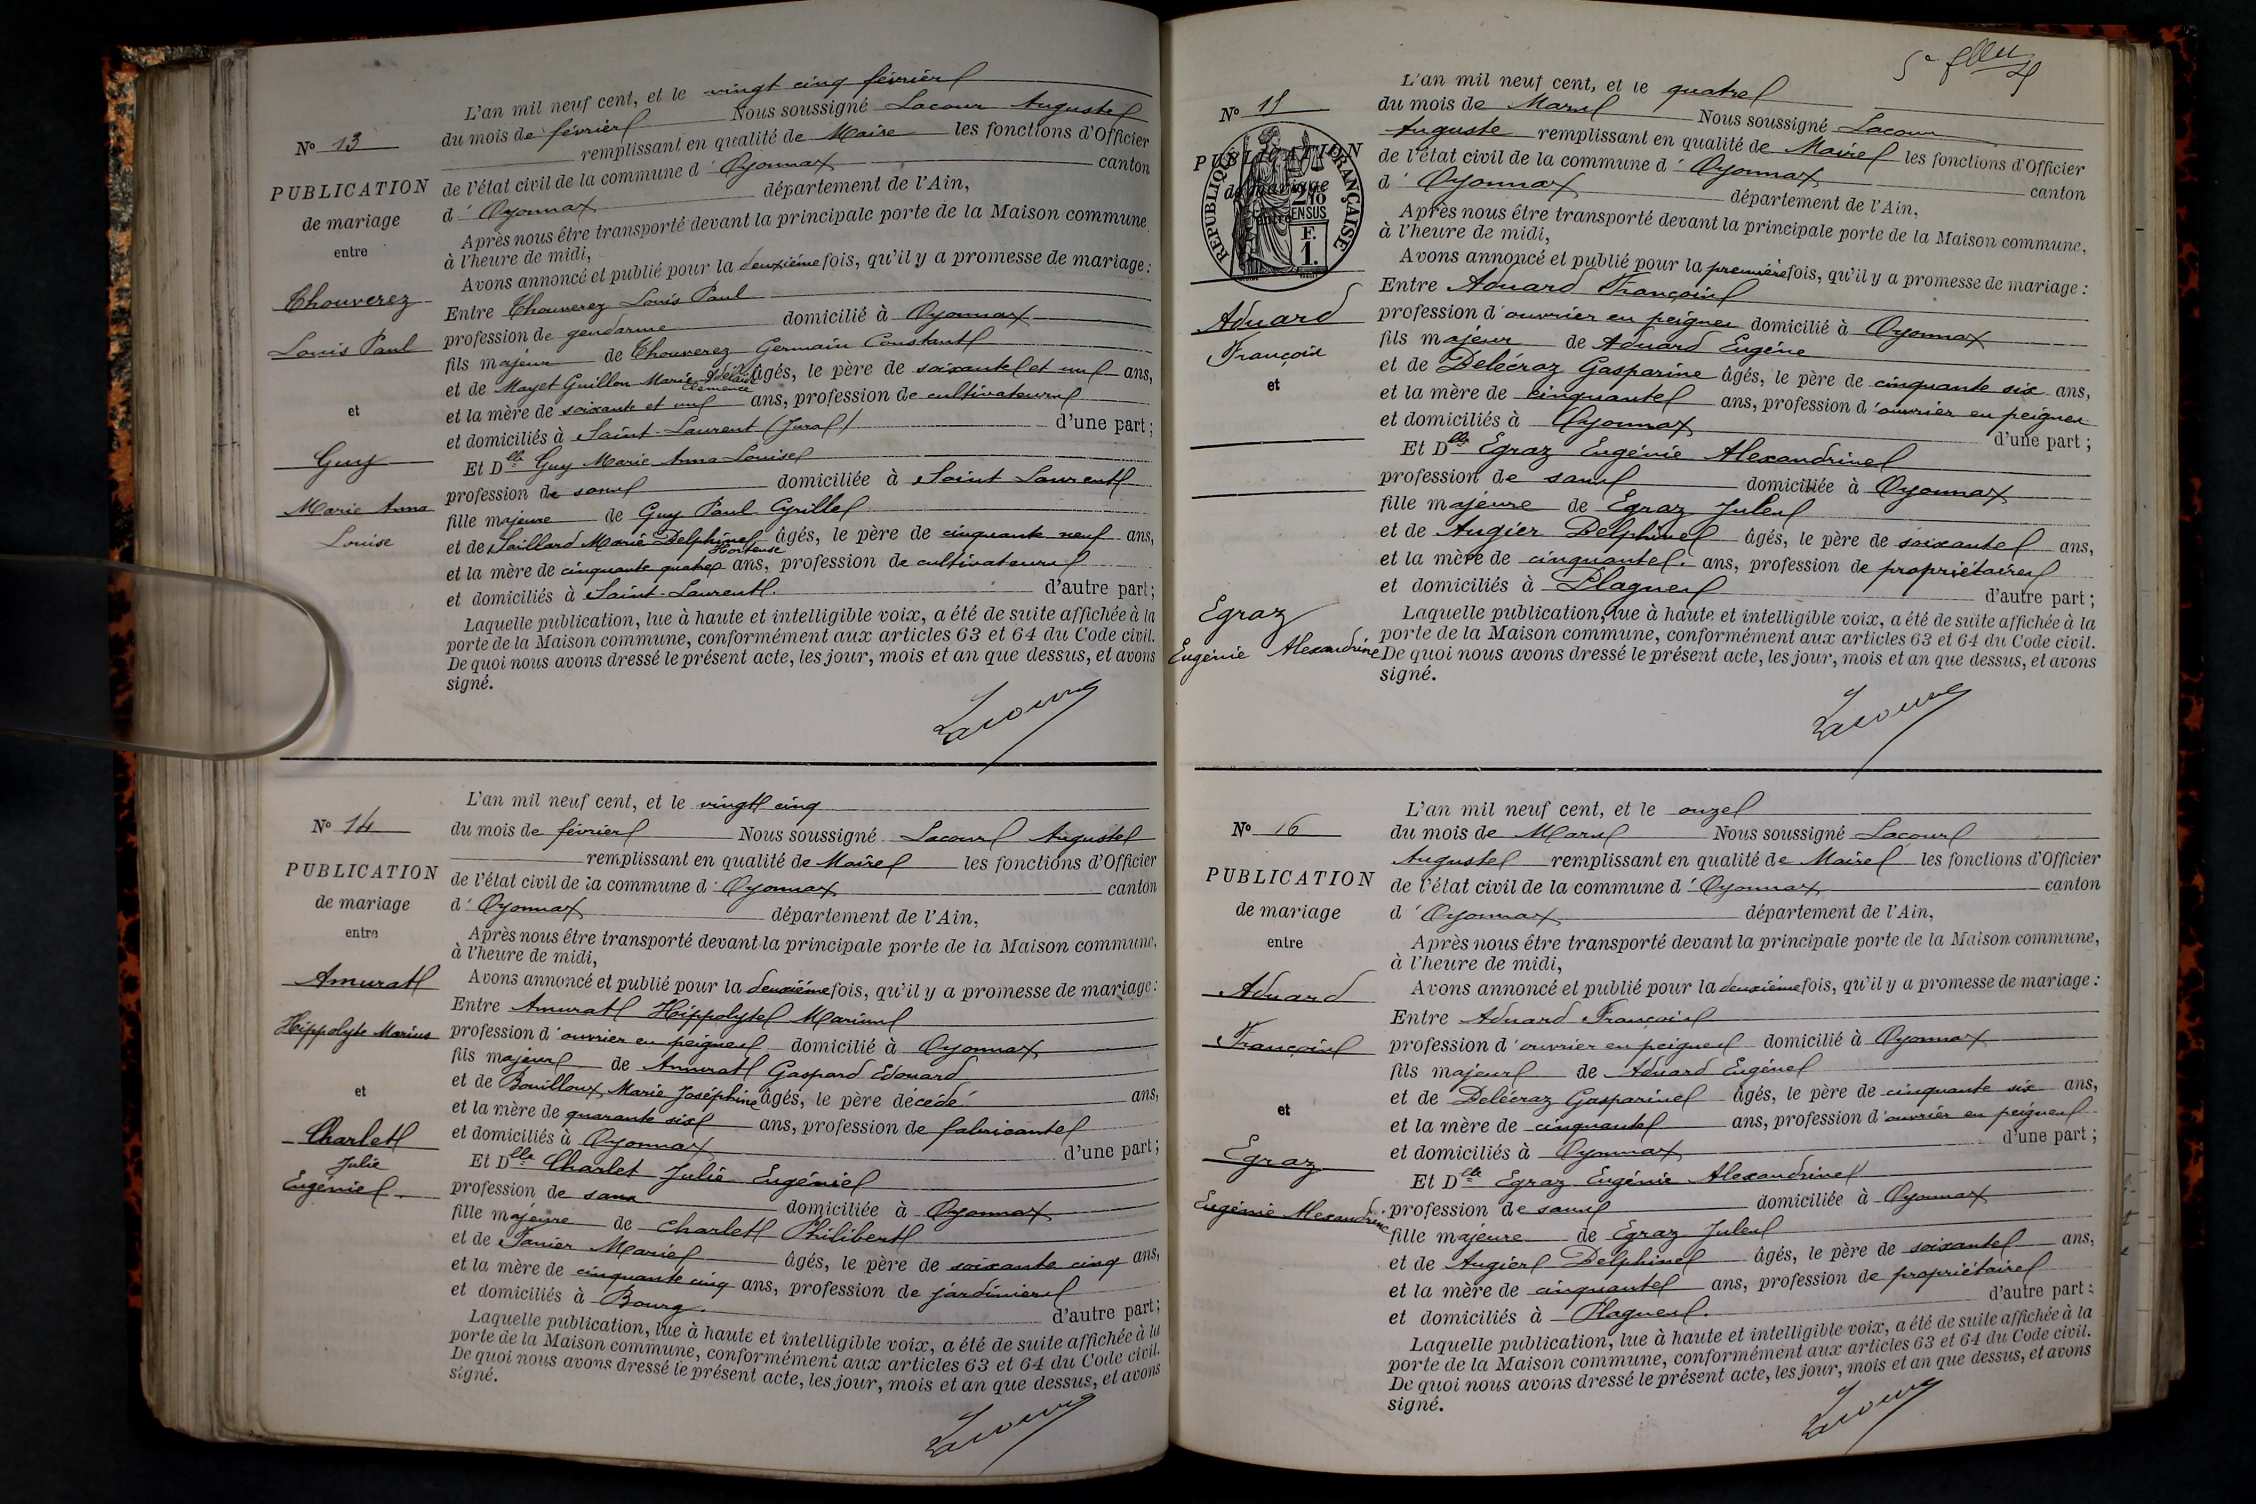 L'an mil neuf cent, et le vingt cinq février
du mois de février Nous soussigné Lacour Auguste
remplissant en qualité de Maire les fonctions d'Officier
de l'état civil de la commune d'Oyonnax canton
d'Oyonnax département de l'Ain,
Après nous être transporté devant la principale porte de la Maison commune
à l'heure de midi,
Avons annoncé et publié pour la deuxième fois, qu'il y a promesse de mariage :
Entre Chouverez Louis Paul
profession de gendarme domicilié à Oyonnax
fils majeur de Chouverez Germain Constant
et de Mayet Guillon Marie Adelaïde Clémence âgés, le père de soixante et un ans,
et la mère de soixante et un ans, profession de cultivateurs
et domiciliés à Saint-Laurent (Jura) d'une part ;
Et Dlle Guy Marie Anna Louise
profession de sans domiciliée à Saint Laurent
fille majeure de Guy Paul Cyrille
et de Saillard Marie Delphine Hortense âgés, le père de cinquante neuf ans,
et la mère de cinquante quatre ans, profession de cultivateurs
et domiciliés à Saint-Laurent. d'autre part ;
Laquelle publication, lue à haute et intelligible voix, a été de suite affichée à la
porte de la Maison commune, conformément aux articles 63 et 64 du Code civil.
De quoi nous avons dressé le présent acte, les jour, mois et an que dessus, et avons
signé.
Lacour
No 13
PUBLICATION
de mariage
entre
Chouverez
Louis Paul
et
Guy
Marie Anna
Louise
L'an mil neuf cent, et le vingt cinq
du mois de février Nous soussigné Lacour Auguste
remplissant en qualité de Maire les fonctions d'Officier
de l'état civil de la commune d'Oyonnax canton
d'Oyonnax département de l'Ain,
Après nous être transporté devant la principale porte de la Maison commune,
à l'heure de midi,
Avons annoncé et publié pour la deuxième fois, qu'il y a promesse de mariage :
Entre Amurat Hippolyte Marius
profession d'ouvrier en peignes domicilié à Oyonnax
fils majeur de Amurat Gaspard Edouard
et de Bouilloux Marie Joséphine âgés, le père décédé ans,
et la mère de quarante six ans, profession de fabricante
et domiciliés à Oyonnax d'une part ;
Et Dlle Charlet Julie Eugénie
profession de sans domiciliée à Oyonnax
fille majeure de Charlet Philibert
et de Janier Marie âgés, le père de soixante cinq ans,
et la mère de cinquante cinq ans, profession de jardiniers
et domiciliés à Bourg. d'autre part ;
Laquelle publication, lue à haute et intelligible voix, a été de suite affichée à la
porte de la Maison commune, conformément aux articles 63 et 64 du Code civil.
De quoi nous avons dressé le présent acte, les jour, mois et an que dessus, et avons
signé.
Lacour
No 14
PUBLICATION
de mariage
entre
Amurat
Hippolyte Marius
et
Charlet
Julie
Eugénie
L'an mil neuf cent, et le quatre
du mois de Mars Nous soussigné Lacour
Auguste remplissant en qualité de Maire les fonctions d'Officier
de l'état civil de la commune d'Oyonnax canton
d'Oyonnax département de l'Ain,
Après nous être transporté devant la principale porte de la Maison commune,
à l'heure de midi,
Avons annoncé et publié pour la première fois, qu'il y a promesse de mariage :
Entre Aduard François
profession d'ouvrier en peignes domicilié à Oyonnax
fils majeur de Aduard Eugène
et de Delécraz Gasparine âgés, le père de cinquante six ans,
et la mère de cinquante ans, profession d'ouvrier en peignes
et domiciliés à Oyonnax d'une part ;
Et Dlle Egraz Eugénie Alexandrine
profession de sans domiciliée à Oyonnax
fille majeure de Egraz Jules
et de Augier Delphine âgés, le père de soixante ans,
et la mère de cinquante ans, profession de propriétaires
et domiciliés à Plagnes d'autre part ;
Laquelle publication, lue à haute et intelligible voix, a été de suite affichée à la
porte de la Maison commune, conformément aux articles 63 et 64 du Code civil.
De quoi nous avons dressé le présent acte, les jour, mois et an que dessus, et avons
signé.
Lacour
No 15
PUBLICATION
de mariage
entre
RÉPUBLIQUE FRANÇAISE
2/10
EN SUS
F.
1.
Aduard
François
et
Egraz
Eugénie Alexandrine
L'an mil neuf cent, et le onze
du mois de Mars Nous soussigné Lacour
Auguste remplissant en qualité de Maire les fonctions d'Officier
de l'état civil de la commune d'Oyonnax canton
d'Oyonnax département de l'Ain,
Après nous être transporté devant la principale porte de la Maison commune,
à l'heure de midi,
Avons annoncé et publié pour la deuxième fois, qu'il y a promesse de mariage :
Entre Aduard François
profession d'ouvrier en peignes domicilié à Oyonnax
fils majeur de Aduard Eugène
et de Delécraz Gasparine âgés, le père de cinquante six ans,
et la mère de cinquante ans, profession d'ouvrier en peignes
et domiciliés à Oyonnax d'une part ;
Et Dlle Egraz Eugénie Alexandrine
profession de sans domiciliée à Oyonnax
fille majeure de Egraz Jules
et de Augier Delphine âgés, le père de soixante ans,
et la mère de cinquante ans, profession de propriétaire
et domiciliés à Plagnes. d'autre part ;
Laquelle publication, lue à haute et intelligible voix, a été de suite affichée à la
porte de la Maison commune, conformément aux articles 63 et 64 du Code civil.
De quoi nous avons dressé le présent acte, les jour, mois et an que dessus, et avons
signé.
Lacour
No 16
PUBLICATION
de mariage
entre
Aduard
François
et
Egraz
Eugénie Alexandrine